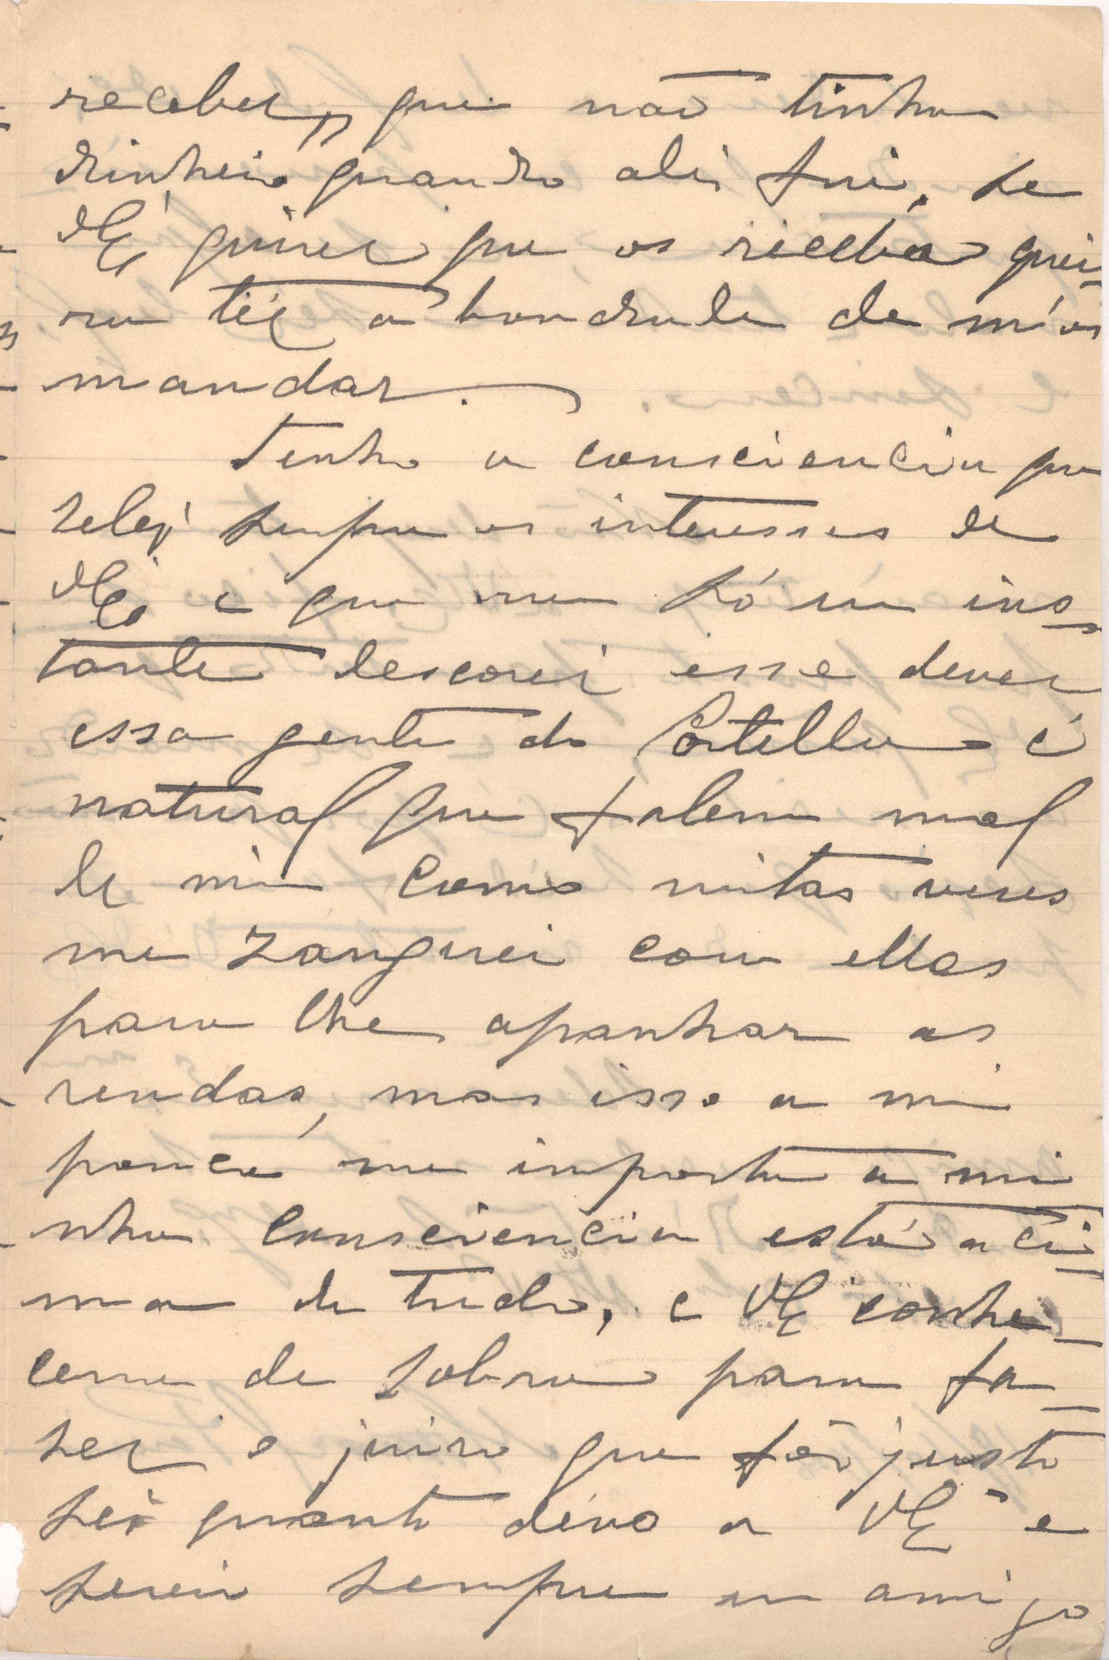 receber,, que não tinha
dinheiro quando ali fui, se
VEª quizer que os receba quei-
ra têr a bondade de m'os
mandar.
Tenho a consciencia que
zelei sempre os interesses de
VEª e que nem só um ins-
tante descorei esse dever
essa gente do Portella é
natural que falem mal
de mim como muitas vezes
me zanguei com elles
para lhe apanhar as
rendas, mas isso a mi
pouco me importa a mi
nha consciencia está aci-
ma de tudo, e VE conhe-
ceme de sobra para fa-
zer o juizo que fôr justo
sei quanto devo a VEª e
serei sempre um amigo